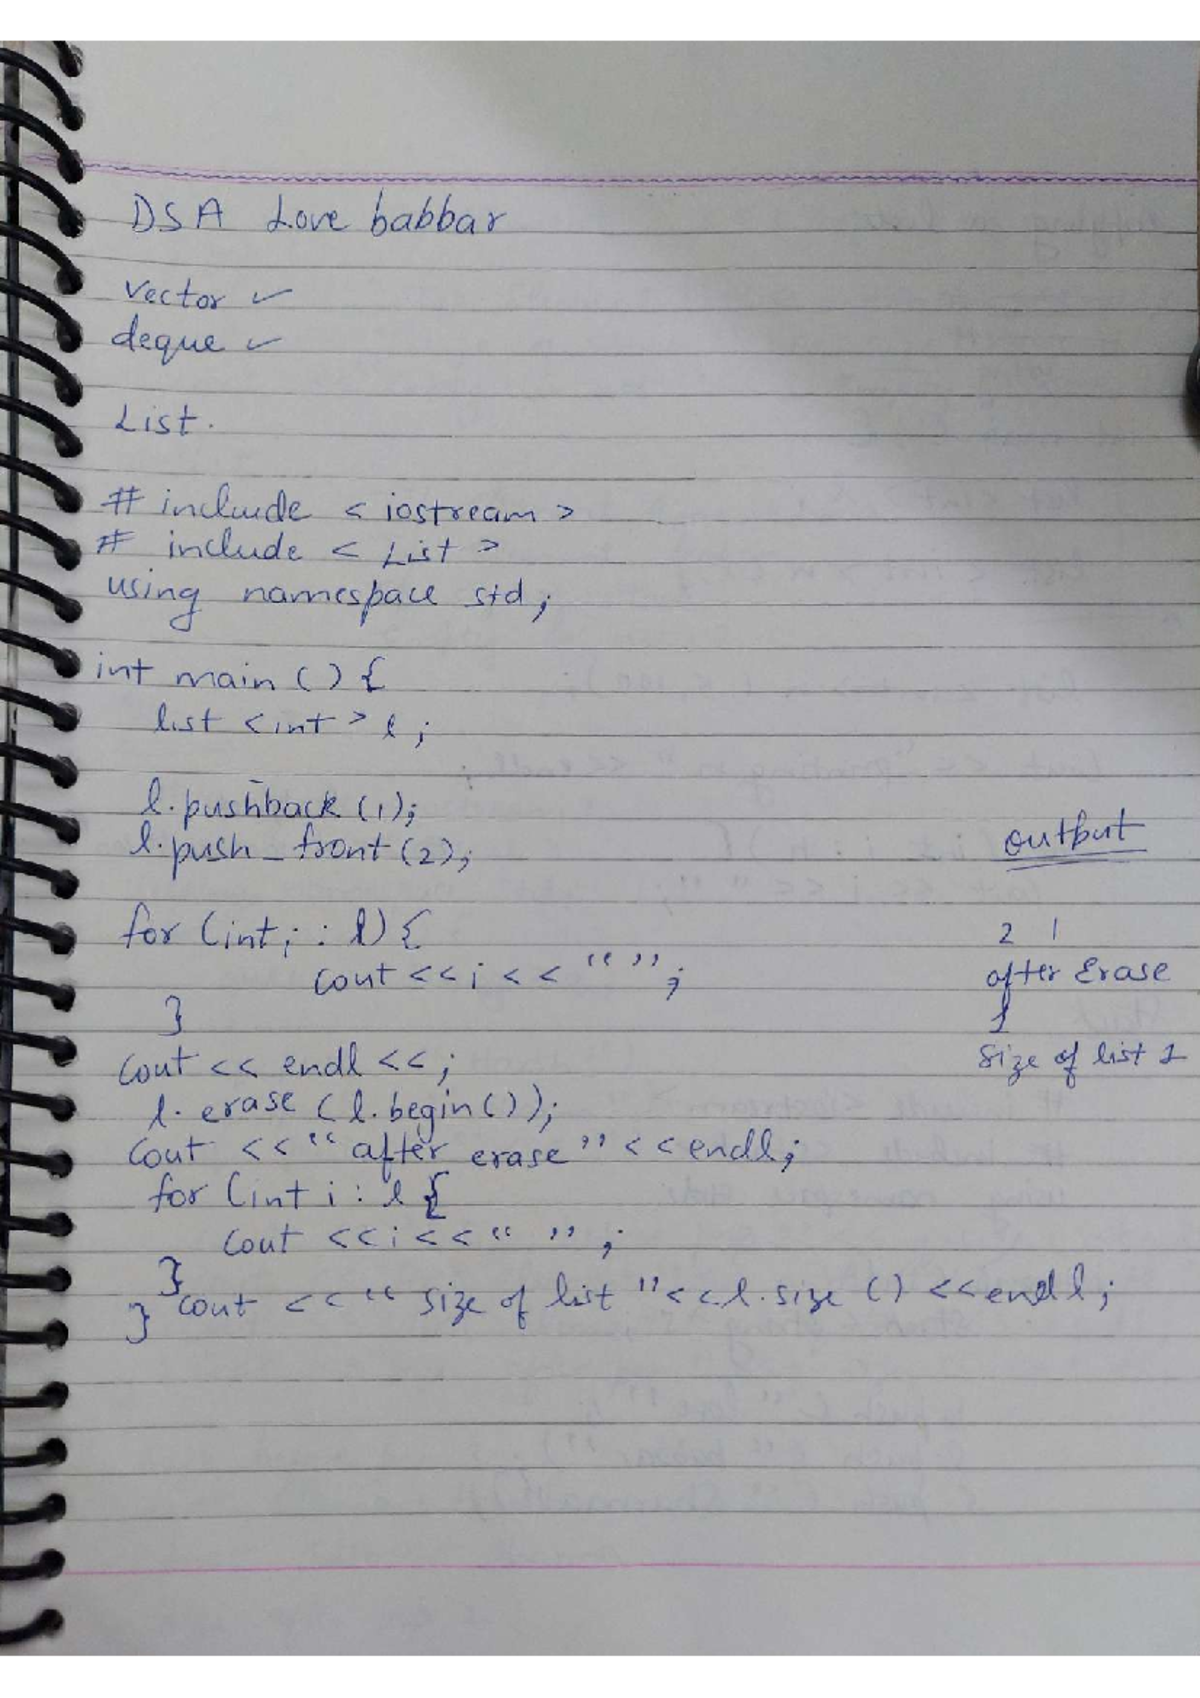 DSA Love babbar
vector ✓
deque ✓
List.
# include < iostream >
# include < List >
using namespace std;
int main () {
list <int> l ;
l. pushback (1);
l. push_front (2);
output
for (int i : l) {
cout << i << " " ;
}
cout << endl << ;
l. erase ( l. begin());
cout << " after erase " << endl;
for (int i : l {
cout << i << " " ;
}
} cout << " size of list " << l. size () << endl ;
2 1
after Erase
1
Size of list 1